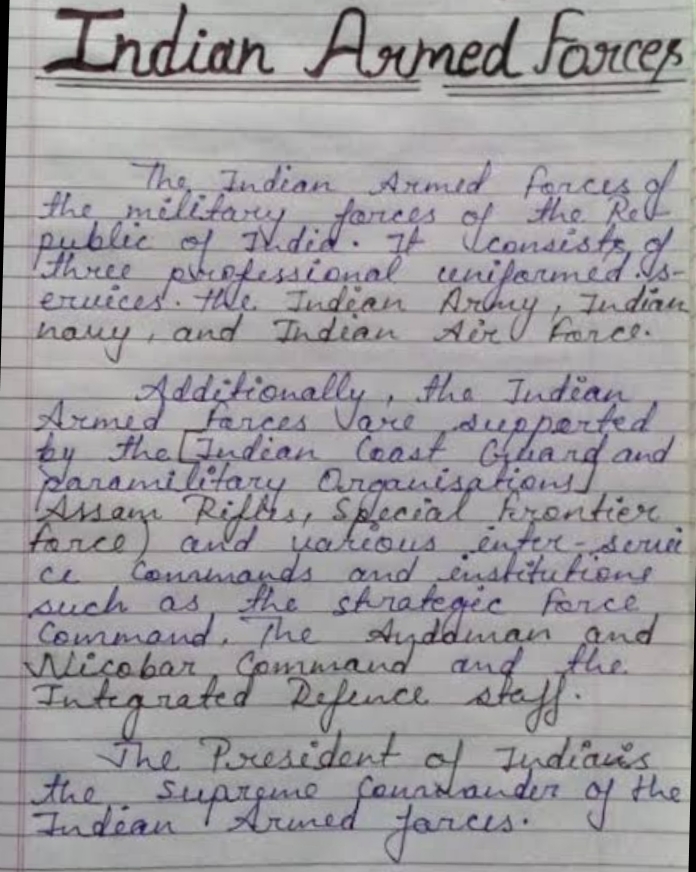 Indian Armed Forces
The Indian Armed forces of
the military forces of the Re-
public of India. It consists of
three professional uniformed s-
ervices. the Indian Army, Indian
navy, and Indian Air Force.
Additionally, the Indian
Armed Forces are supported
by the [Indian Coast Guard and
paramilitary Organisations]
Assam Rifles, Special Frontier
force) and various inter-servi
ce Commands and institutions
such as the strategic Force
Command. The Anddaman and
Nicobar Command and the
Integrated Defence staff.
The President of India is
the Supreme Commander of the
Indian Armed forces.